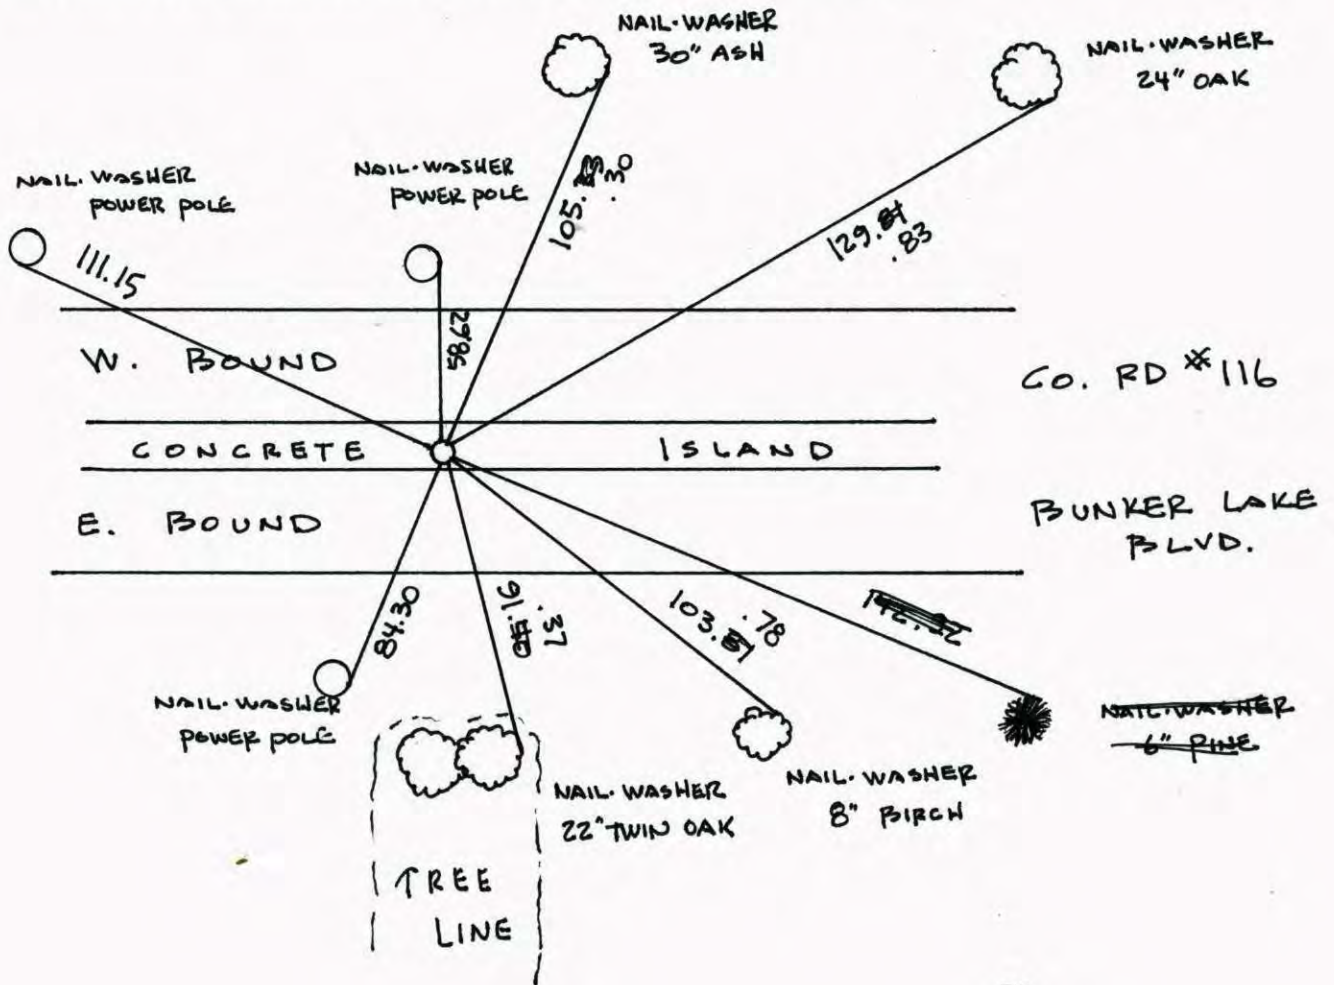 NAIL·WASHER
30" ASH
NAIL·WASHER
24" OAK
NAIL·WASHER
POWER POLE
NAIL·WASHER
POWER POLE
111.15
58.62
105.
.30
129.84
.83
W. BOUND
CO. RD #116
CONCRETE ISLAND
E. BOUND
BUNKER LAKE
BLVD.
84.30
91.50
.37
103.81
.78
142.32
NAIL·WASHER
POWER POLE
NAIL·WASHER
22" TWIN OAK
NAIL·WASHER
8" BIRCH
NAIL·WASHER
6" PINE
TREE
LINE